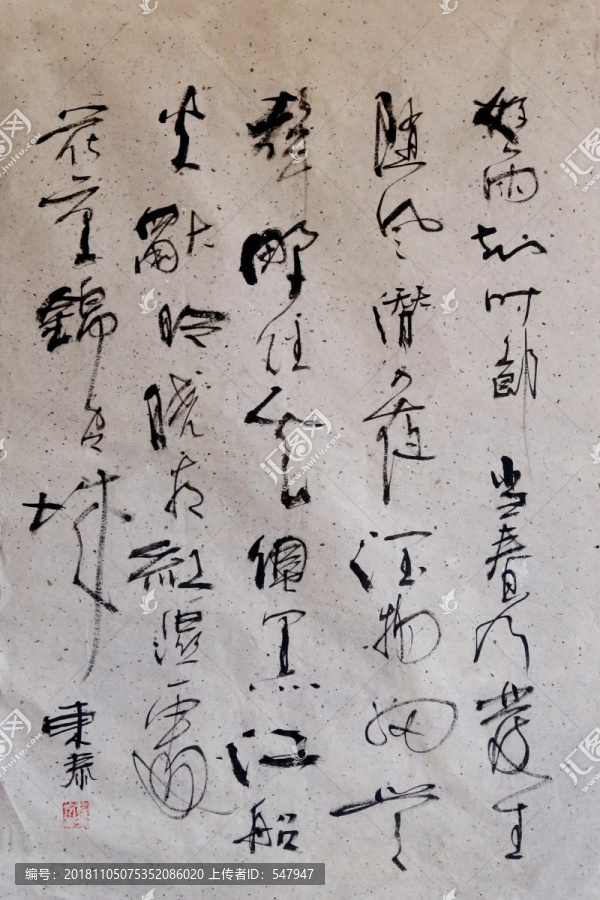 好雨知时節 当春乃發生
随风潜入夜 润物细无
聲 野径云俱黑 江船
火獨明 曉看紅濕處
花重錦官城
東泰
编号：20181105075352086020 上传者ID：547947